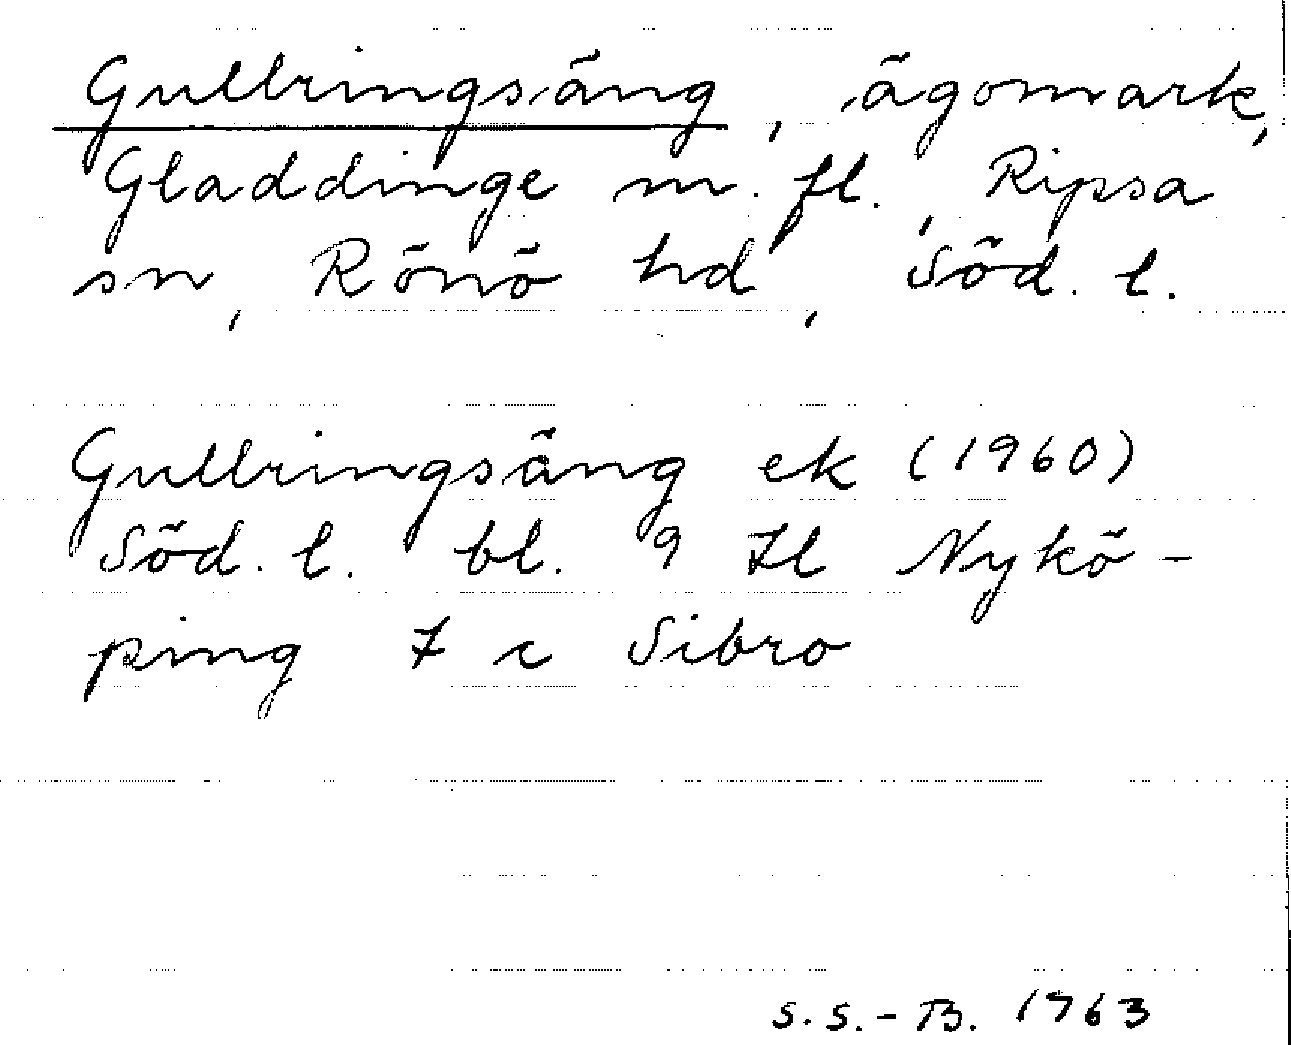 Gullringsäng, ägomark,
Gladdinge m. fl., Ripsa
sn, Rönö hd, Söd. l.
Gullringsäng ek (1960)
Söd. l. bl. 9 Il Nykö-
ping 7 c Sibro
S.S.-B. 1963